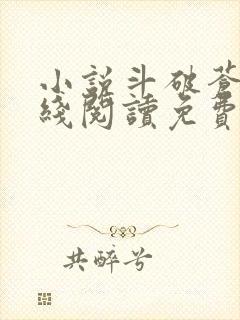 小説斗破蒼
綫閱讀免費
共醉兮